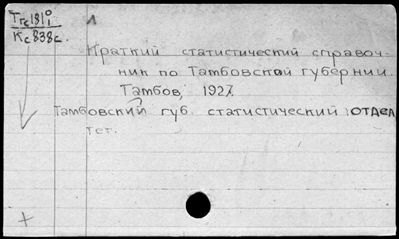 Тгс181°
1
Кс838с.
Краткий статистический справоч-
ник по Тамбовской губернии.
Тамбов, 1927.
Тамбовский губ. статистический отдел
тет.